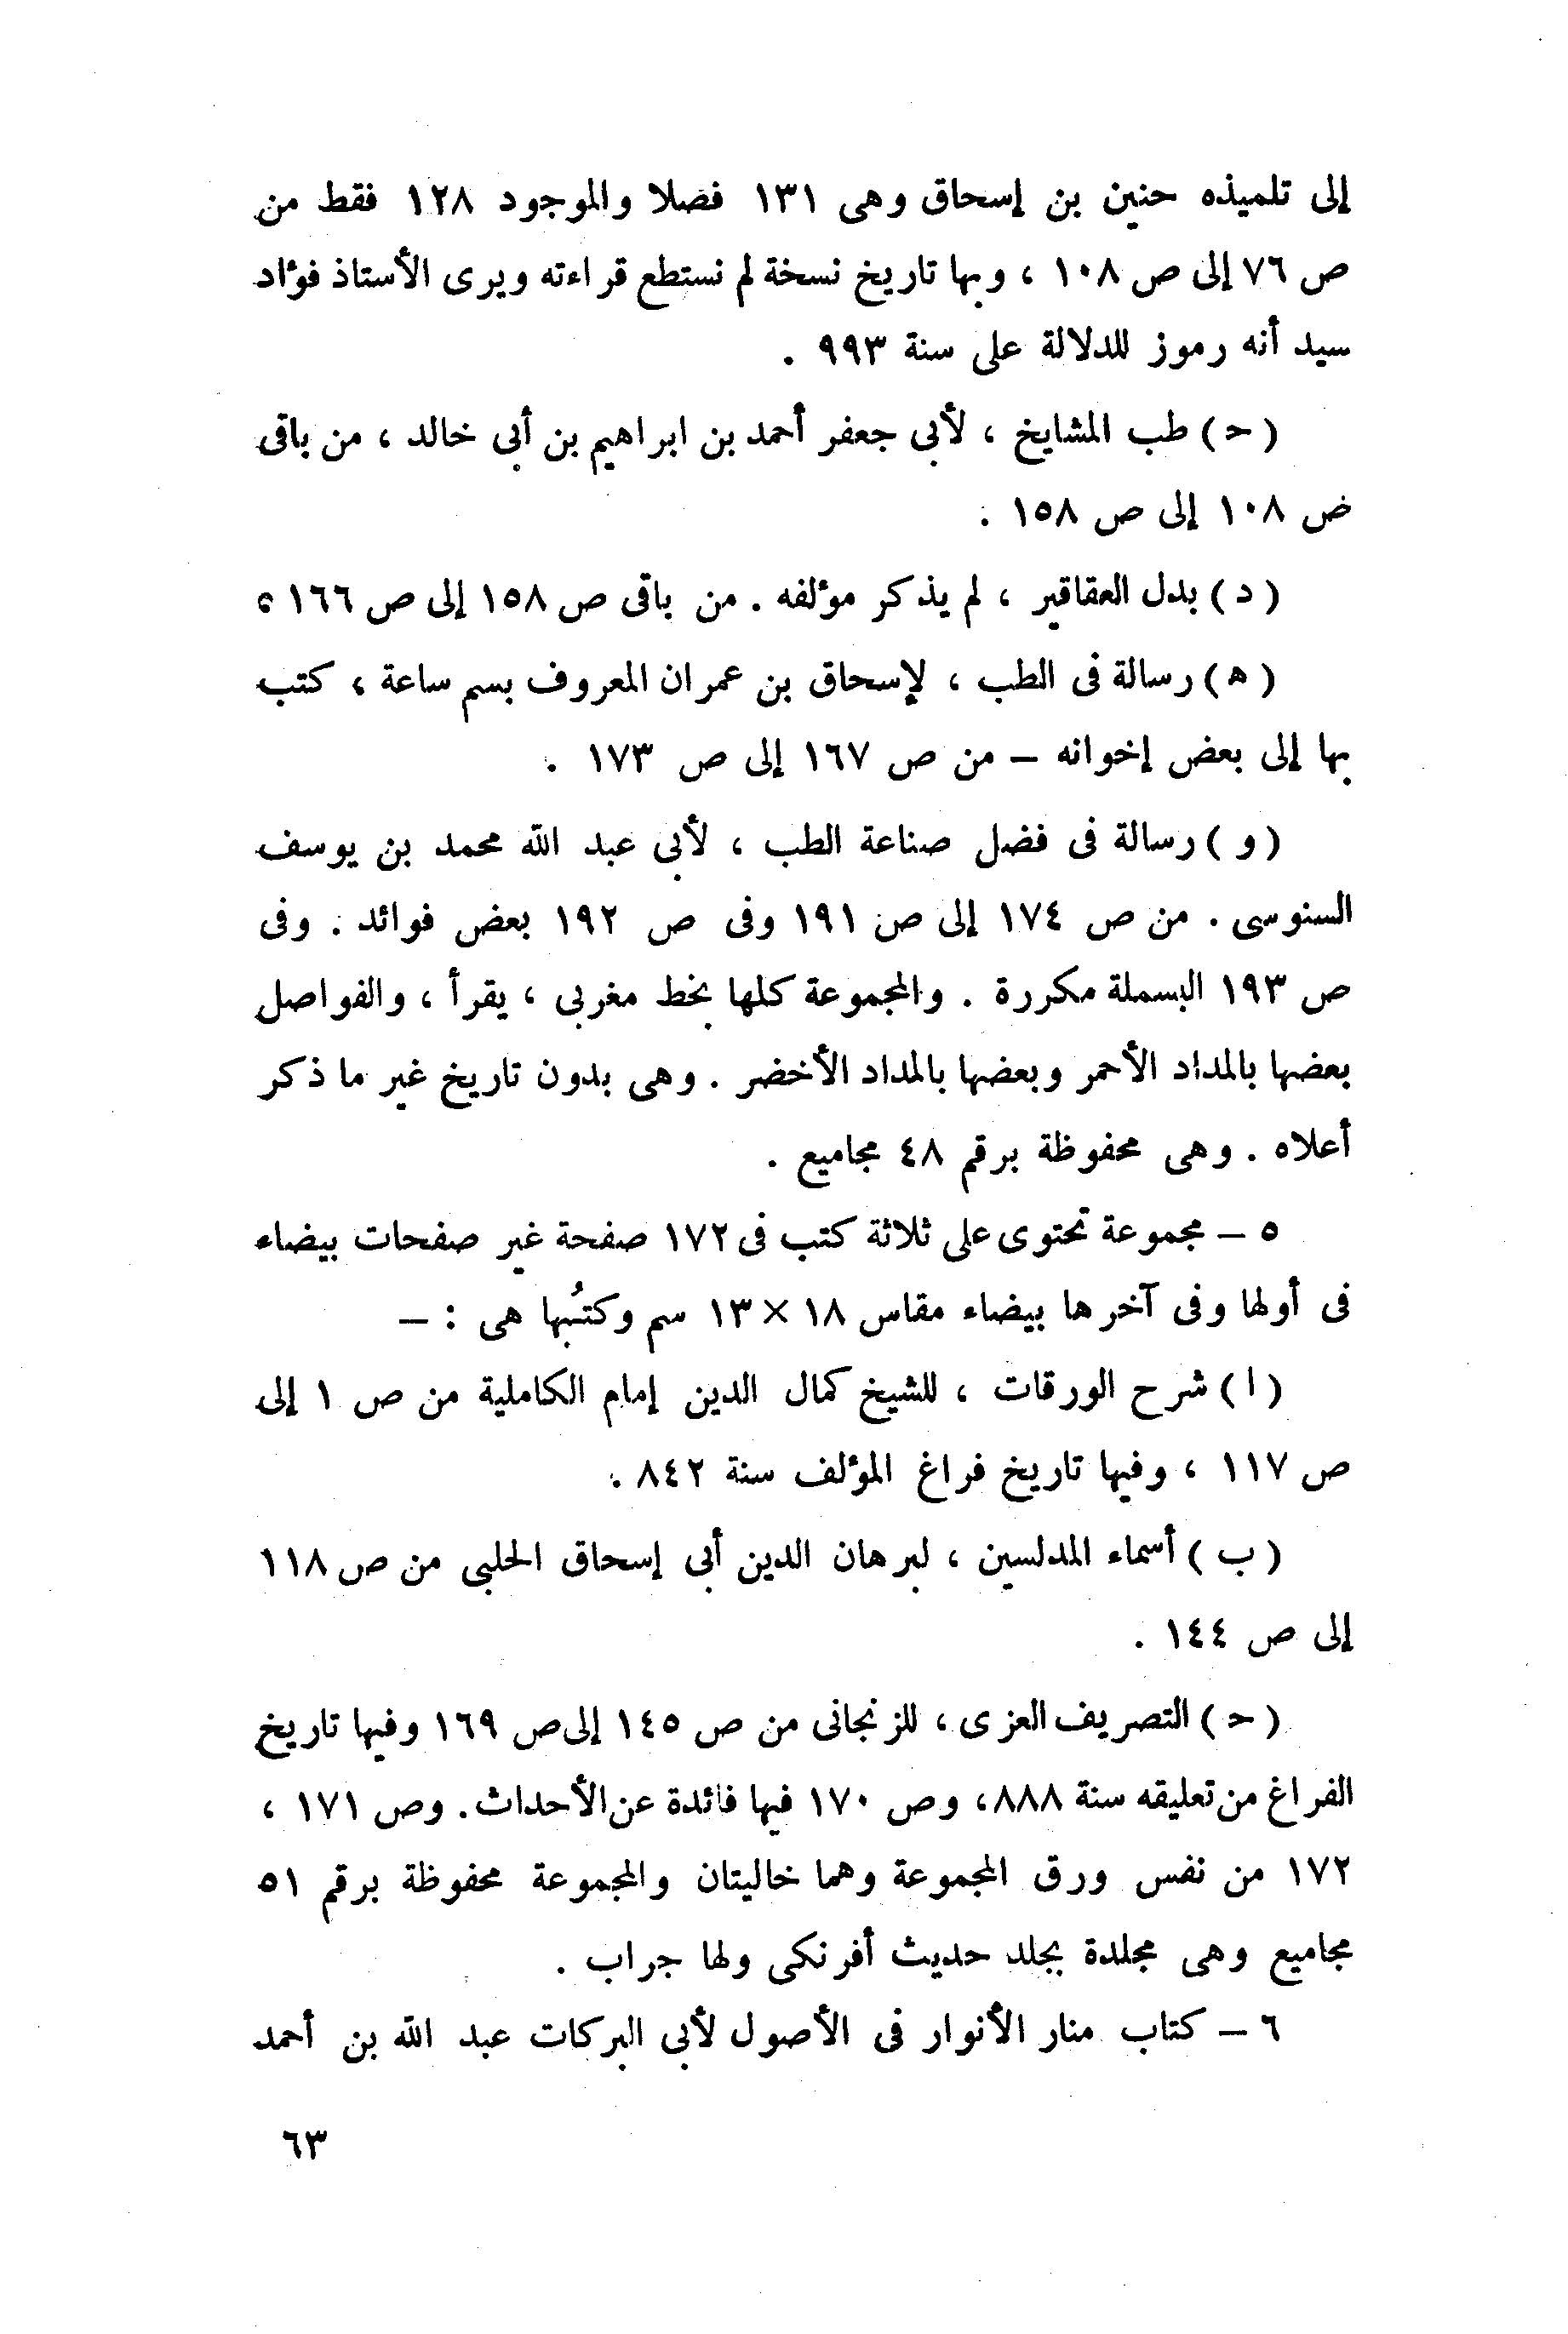 إلى تلميذه حنين بن إسحاق وهى ١٣١ فصلا والموجود ١٢٨ فقط من
ص ٧٦ إلى ص ١٠٨ ، وبها تاريخ نسخة لم نستطع قراءته ويرى الأستاذ فؤاد
سيد أنه رموز للدلالة على سنة ٩٩٣ .
( ح ) طب المشايخ ، لأبى جعفر أحمد بن ابراهيم بن أبى خالد ، من باقى
ض ١٠٨ إلى ص ١٥٨ .
( د ) بدل العقاقير ، لم يذكر مؤلفه . من باقى ص ١٥٨ إلى ص ١٦٦ ه
( ه ) رسالة فى الطب ، لإسحاق بن عمران المعروف بسم ساعة ، كتب
بها إلى بعض إخوانه – من ص ١٦٧ إلى ص ١٧٣ .
( و ) رسالة فى فضل صناعة الطب ، لأبى عبد الله محمد بن يوسف
السنوسى . من ص ١٧٤ إلى ص ١٩١ وفى ص ١٩٢ بعض فوائد . وفى
ص ١٩٣ البسملة مكررة . والمجموعة كلها بخط مغربى ، يقرأ ، والفواصل
بعضها بالمداد الأحمر وبعضها بالمداد الأخضر . وهى بدون تاريخ غير ما ذكر
أعلاه . وهى محفوظة برقم ٤٨ مجاميع .
٥ – مجموعة تحتوى على ثلاثة كتب فى ١٧٢ صفحة غير صفحات بيضاء
فى أولها وفى آخرها بيضاء مقاس ١٨ × ١٣ سم وكتُبها هى : –
( ا ) شرح الورقات ، للشيخ كمال الدين إمام الكاملية من ص ١ إلى
ص ١١٧ ، وفيها تاريخ فراغ المؤلف سنة ٨٤٢ .
( ب ) أسماء المدلسين ، لبرهان الدين أبى إسحاق الحلبى من ص ١١٨
إلى ص ١٤٤ .
( ح ) التصريف العزى ، للزنجانى من ص ١٤٥ إلى ص ١٦٩ وفيها تاريخ
الفراغ من تعليقه سنة ٨٨٨ ، وص ١٧٠ فيها فائدة عن الأحداث . وص ١٧١ ،
١٧٢ من نفس ورق المجموعة وهما خاليتان والمجموعة محفوظة برقم ٥١
مجاميع وهى مجلدة بجلد حديث أفرنكى ولها جراب .
٦ – كتاب منار الأنوار فى الأصول لأبى البركات عبد الله بن أحمد
٦٣